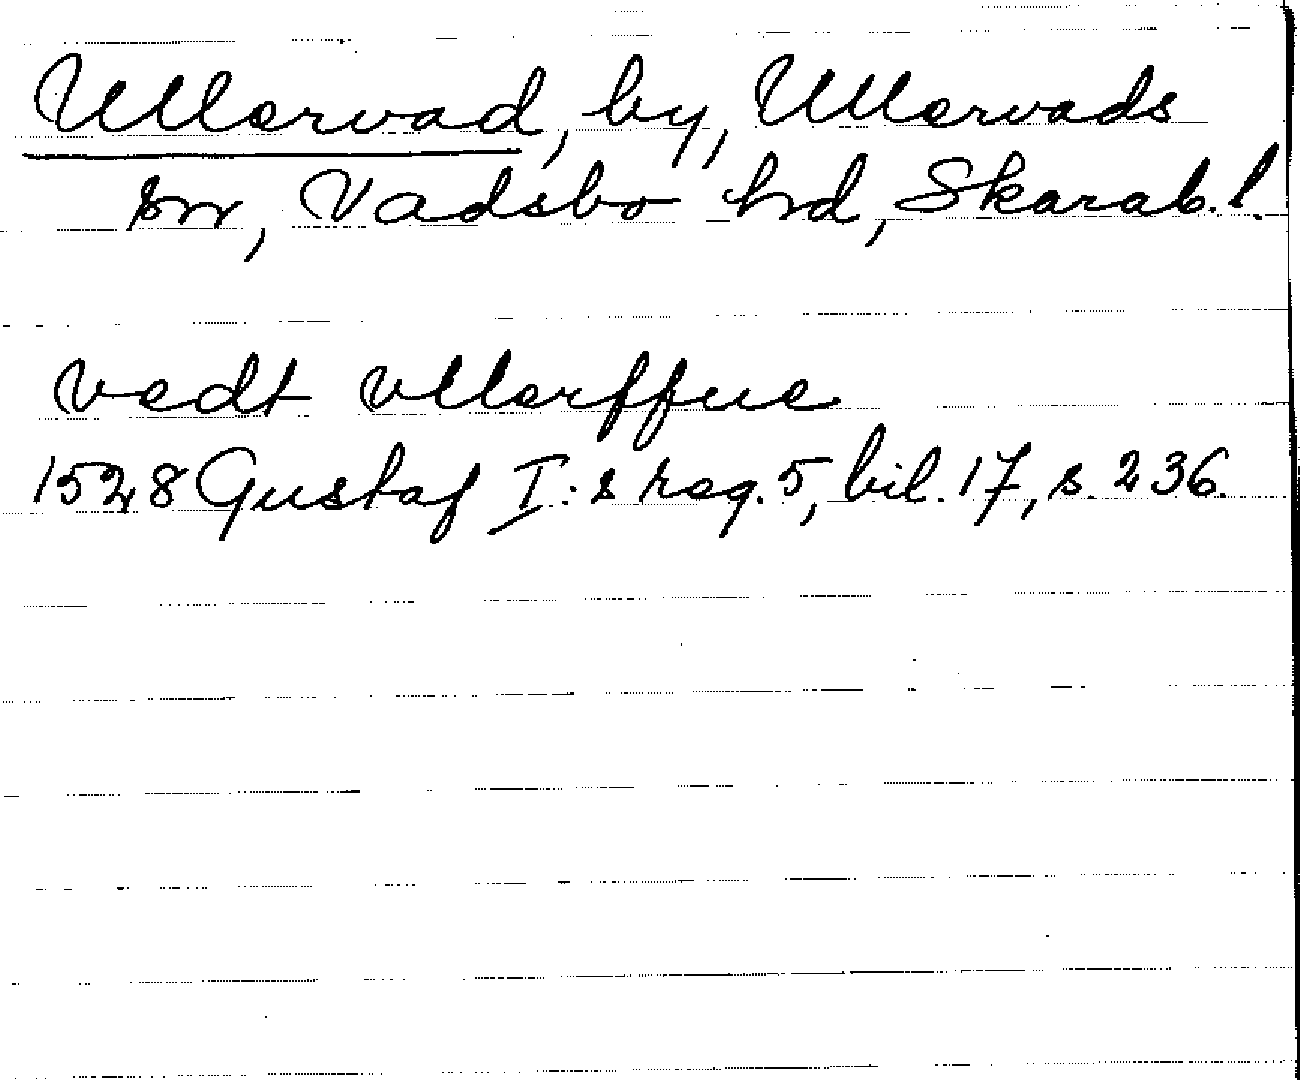 Ullervad, by, Ullervads
sn, Vadsbo hd, Skarab. l.
vedt vllerffue
1528 Gustaf I:s reg. 5, bil. 17, s. 236.